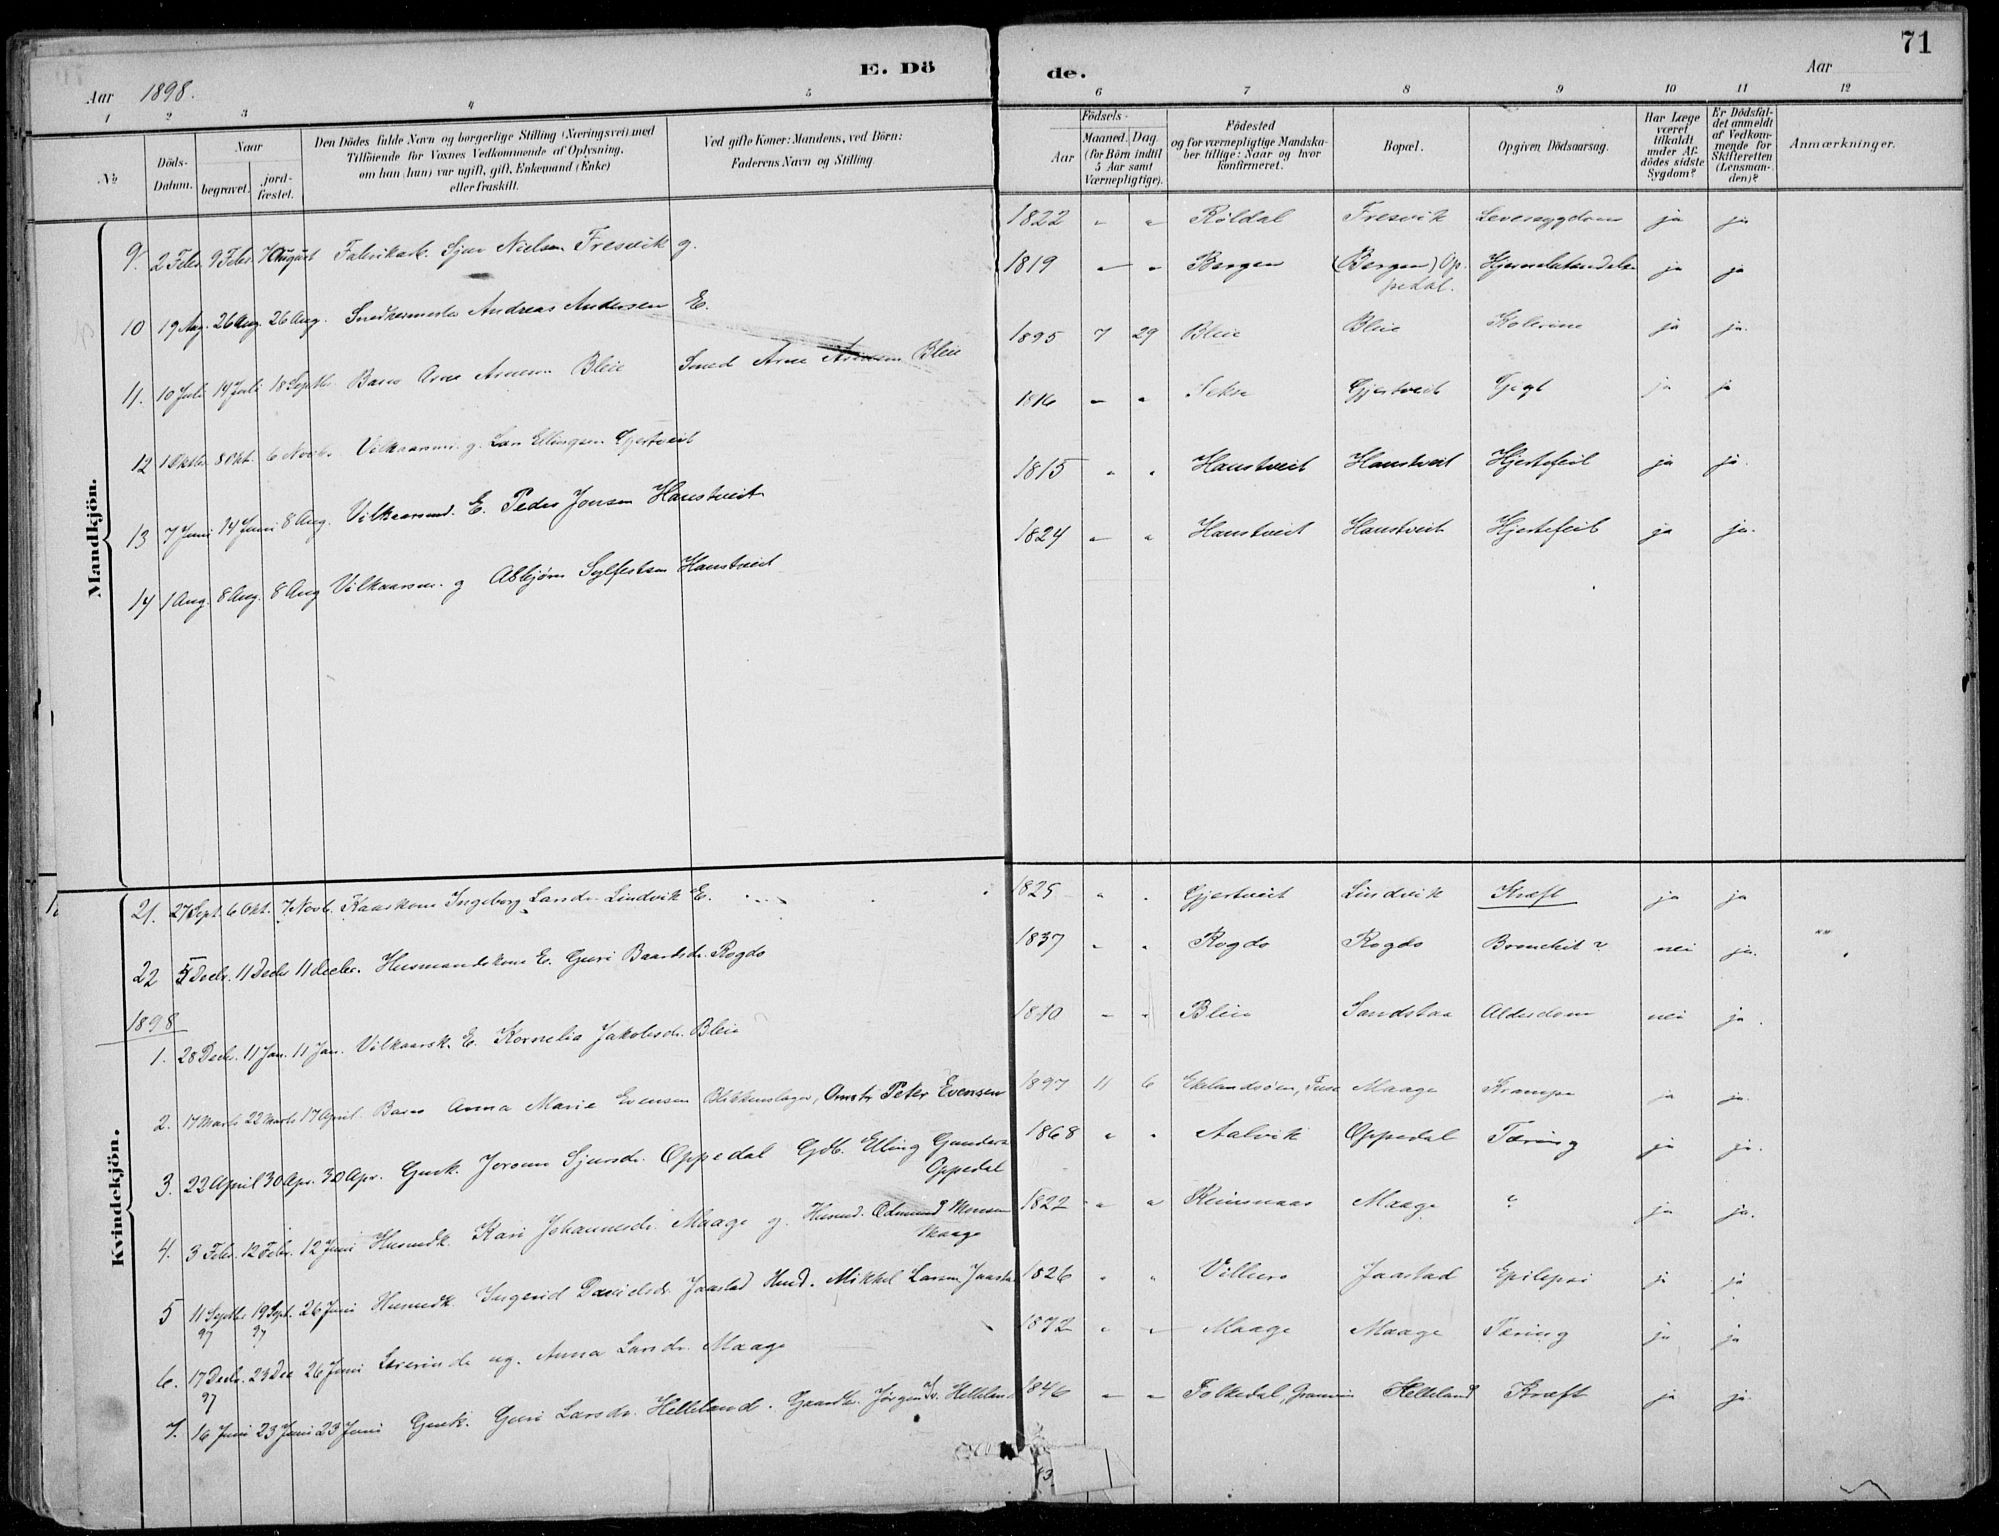 71
E. Dö de.
Aar 1898.
Aar
1 2 3 4 5 6 7 8 9 10 11 12
№
Döds-Datum.
Naar
begravet.
jord-fæstet.
Den Dödes fulde Navn og borgerlige Stilling (Næringsvei) med Tilföiende for Voxnes Vedkommende af Oplysning, om han (hun) var ugift, gift, Enkemand (Enke) eller fraskilt.
Ved gifte Koner: Mandens, ved Börn: Faderens Navn og Stilling.
Födsels-
Aar
Maaned. Dag
(for Börn indtil 5 Aar samt Værnepligtige).
Födested og for værnepligtige Mandskaber tillige: Naar og hvor konfirmeret.
Bopæl.
Opgiven Dödsaarsag.
Har Læge været tilkaldt under Afdödes sidste Sygdom?
Er Dödsfaldet anmeldt af Vedkommende for Skifteretten (Lensmanden)?
Anmærkninger.
Mandkjön.
9. 2 Febr. 9 Febr. 7 August Fabrikarb. Sjur Nielsen Fresvik g. 1822 " " Röldal Fresvik Leversygdom ja ja
10 19 Aug. 26 Aug. 26 Aug. Snedkermester Andreas Andersen E. 1819 " " Bergen (Bergen) Oppedal. ja ja
11. 10 Juli 14 Juli 18 Septbr. Barn Arne Arnesen Bleie Smed Arne Arnesen Bleie 1895 7 29 Bleie Bleie Kolerine ja ja.
12 1 Oktbr. 8 Okt. 6 Novb. Vilkaarsm. g. Lars Ellingsen Gjertveit 1816 " " Sekse Gjertveit Gigt ja ja
13 7 Juni 14 Juni 8 Aug. Vilkaarsmd. E. Peder Jonsen Haustveit 1815 " " Haustveit Haustveit Hjertefeil ja ja.
14 1 Aug. 8 Aug. 8 Aug Vilkaarsm. g Asbjørn Sylfestsen Haustveit 1824 " " Haustveit Haustveit Hjertefeil ja ja.
Kvindekjön.
21. 27 Sept. 6 Okt. 7 Novb. Kaarkone Ingeborg Larsdr. Lindvik E. 1825 " " Gjertveit Lindvik Kræft ja ja
22 5 Decbr. 11 Decbr 11 Decbr. Husmandskone E. Guri Baardsdr. Rogdo 1837 " " Rogdo Rogdo Bronchit ? nei ja.
1898
1. 28 Decbr. 11 Jan. 11 Jan. Vilkaarsk. E. Kornelia Jakobsdr. Bleie 1810 " " Bleie Sandstaa Alderdom nei ja.
2. 17 Marts 22 Marts 17 April. Barn Anna Marie Evensen Blikkenslager, Omstr. Peter Evensen 1897 11 6 Ekelandsøen, Fuse Maage Krampe ja ja.
3. 22 April 30 Apr. 30 Apr. Gmk. Sjursdr. Oppedal Gdb. Elling Gunders. Oppedal 1868 " " Aalvik Oppedal Tæring ja ja.
4. 3 Febr. 12 Febr. 12 Juni Husmdk. Kari Johannesdr. Maage g. Husmd. Odmund Monsen Maage 1822 " " Reinsnaas Maage " ja ja.
5 11 Septbr 97 19 Sept. 97 26 Juni Husmdk. Ingerid Danielsdr. Jaastad Husmd. Mikkel Larsen Jaastad 1826 " " Villure Jaastad Epilepsi ja ja
6. 17 Decbr. 97 23 Dec 26 Juni ug. Anna Larsdr. Maage 1872 " " Maage Maage Tæring ja ja
7. 16 Juni 23 Juni 23 Juni Gmk. Guri Larsdr. Helleland. Gaardbr. Jørgen Helleland 1846 " " Folkedal, Graven Helleland Kræft ja ja.